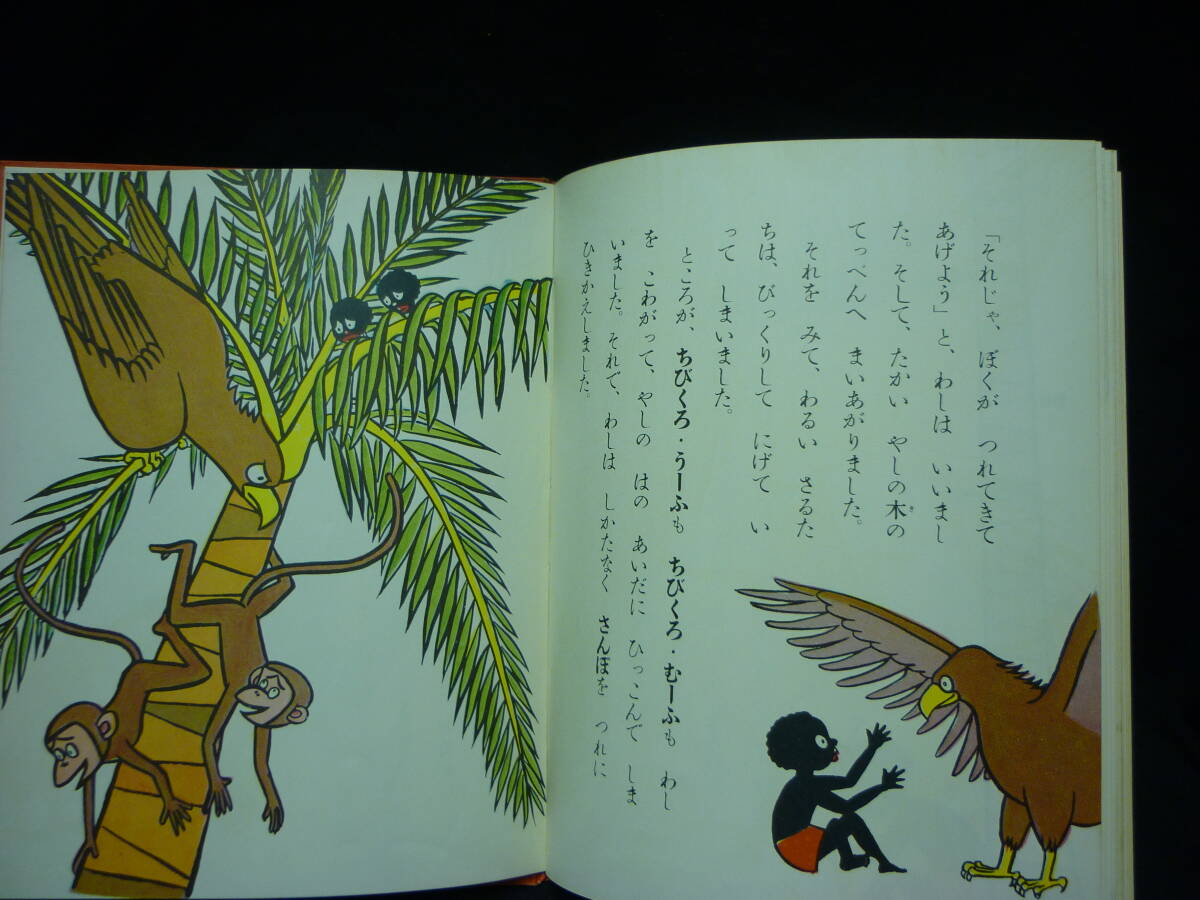 「それじゃ、 ぼくが つれてきて
あげよう」と、わしは いいまし
た。そして、たかい やしの木の
てっぺんへ まいあがりました。
それを みて、わるい さるた
ちは、びっくりして にげて い
って しまいました。
ところが、ちびくろ・うーふも ちびくろ・むーふも わし
を こわがって、やしの はの あいだに ひっこんで しま
いました。それで、わしは しかたなく さんぼを つれに
ひきかえしました。